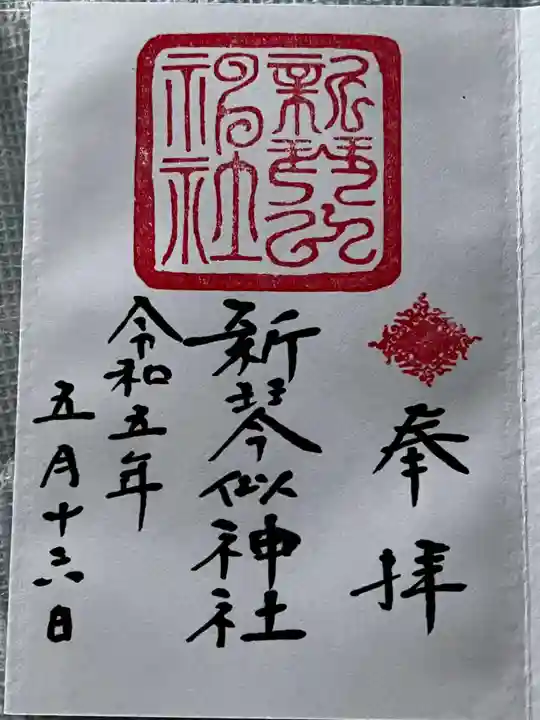 奉拝
新琴似神社
新琴似神社
令和五年
五月十六日